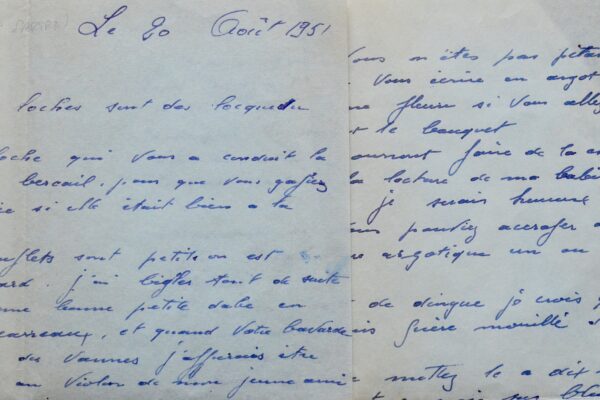 Le 20 Août 1951
loches sont des locquedu
loche qui vous a conduit la
bercail, pour que vous gafiez
si elle était bien a la
sont petits on est
j'ai bigler tout de suite
bonne petite dabe en
carreaux, et quand votre bavarde
des vannes j'affurais être
au violon de mon jeune ami
vous n'êtes pas
Vous écrire en argot
fleure si vous allez
le bouquet
faire de la
la locture de ma babi
je serais heureux
pouviez accrofer
argotique un ou
de dingue jô crois
guère mouillé
mettez le a dix